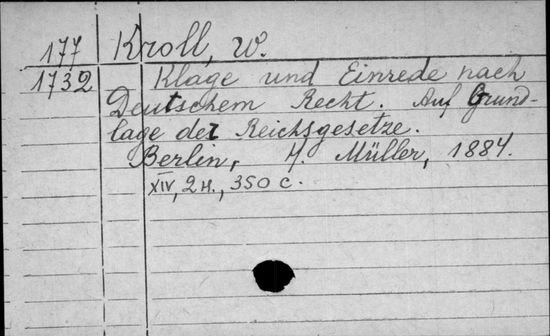 177 Kroll, W.
1732 Klage und Einrede nach
Deutschem Recht. Auf Grund-
lage der Reichsgesetze.
Berlin, H. Müller, 1884.
XIV, 2 н., 350 с.